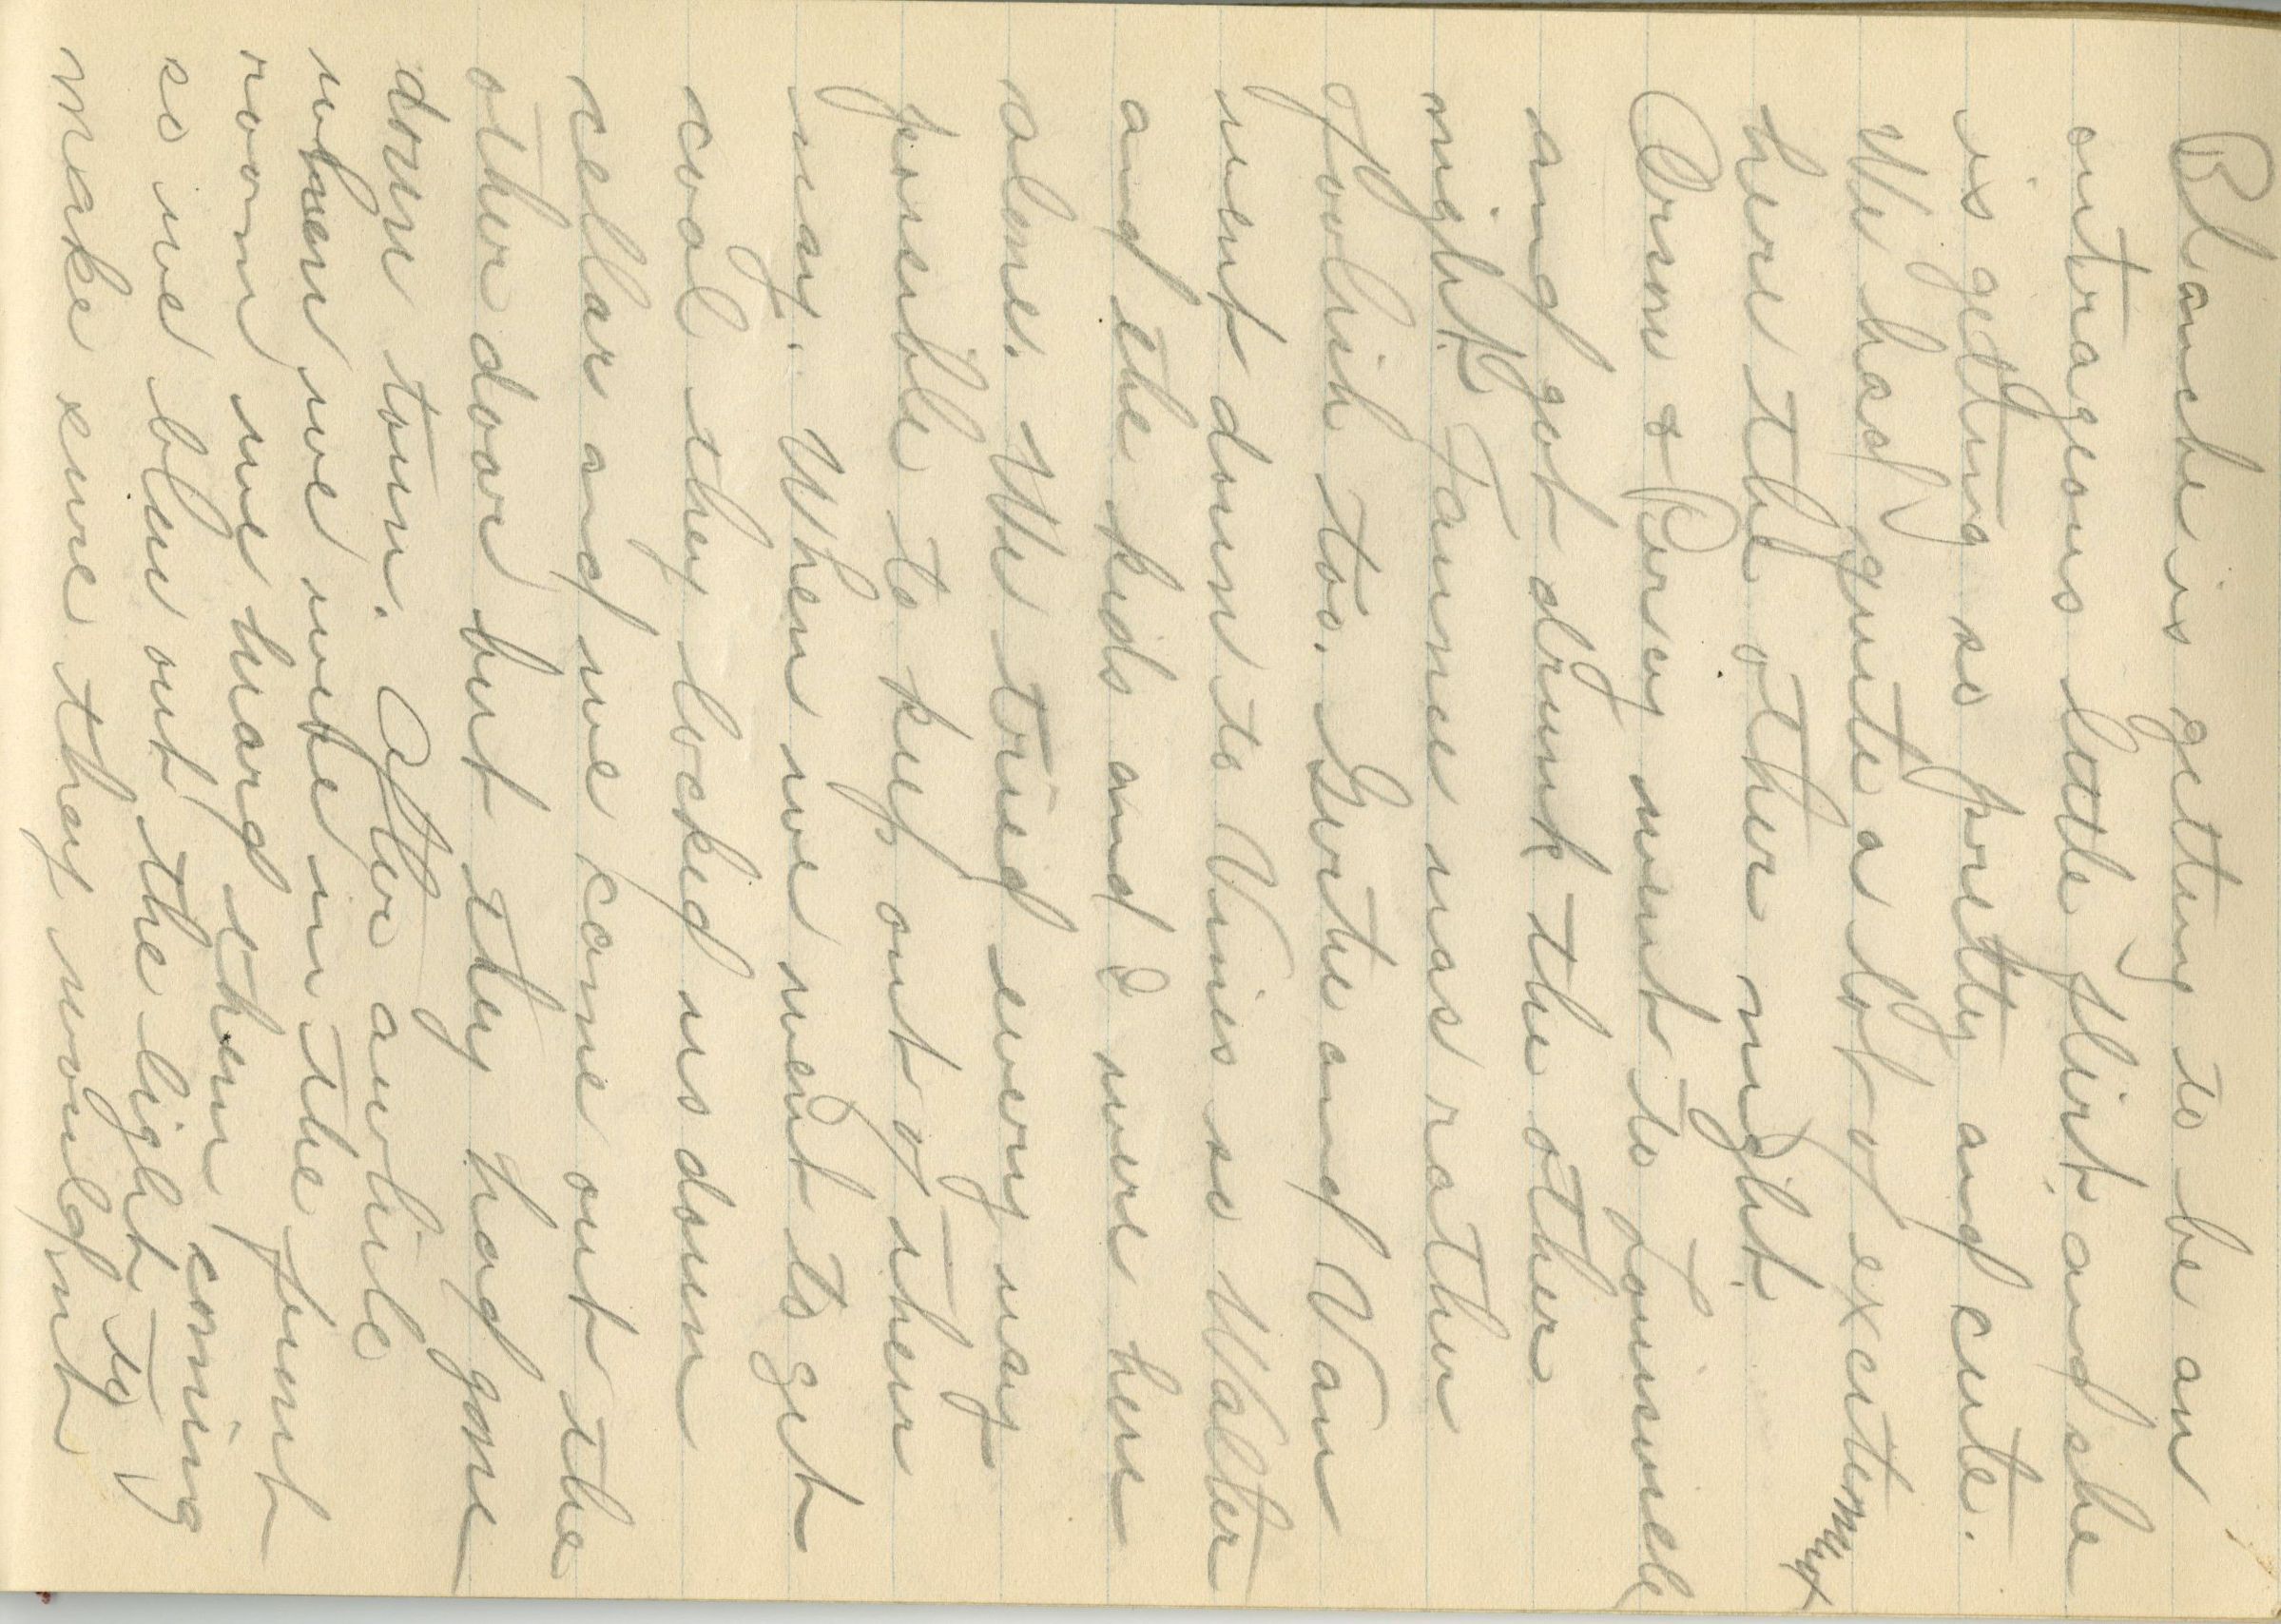 Blanche is getting to be an
outrageous little flirt and she
is getting so pretty and cute.
We had quite a lot of excitement
here the other night.
Orson & Percy went to Louisville
and got drunk the other
night. Fannie was rather
foolish too. Gertie and Van
went down to Vinies so Walter
and the kids and I were here
alone. We tried every way
possible to keep out of their
way. When we went to get
coal they locked us down
cellar and we came out the
other door but they had gone
down town. After awhile
when we were in the front
room we heard them coming
so we blew out the light to
make sure they wouldn't